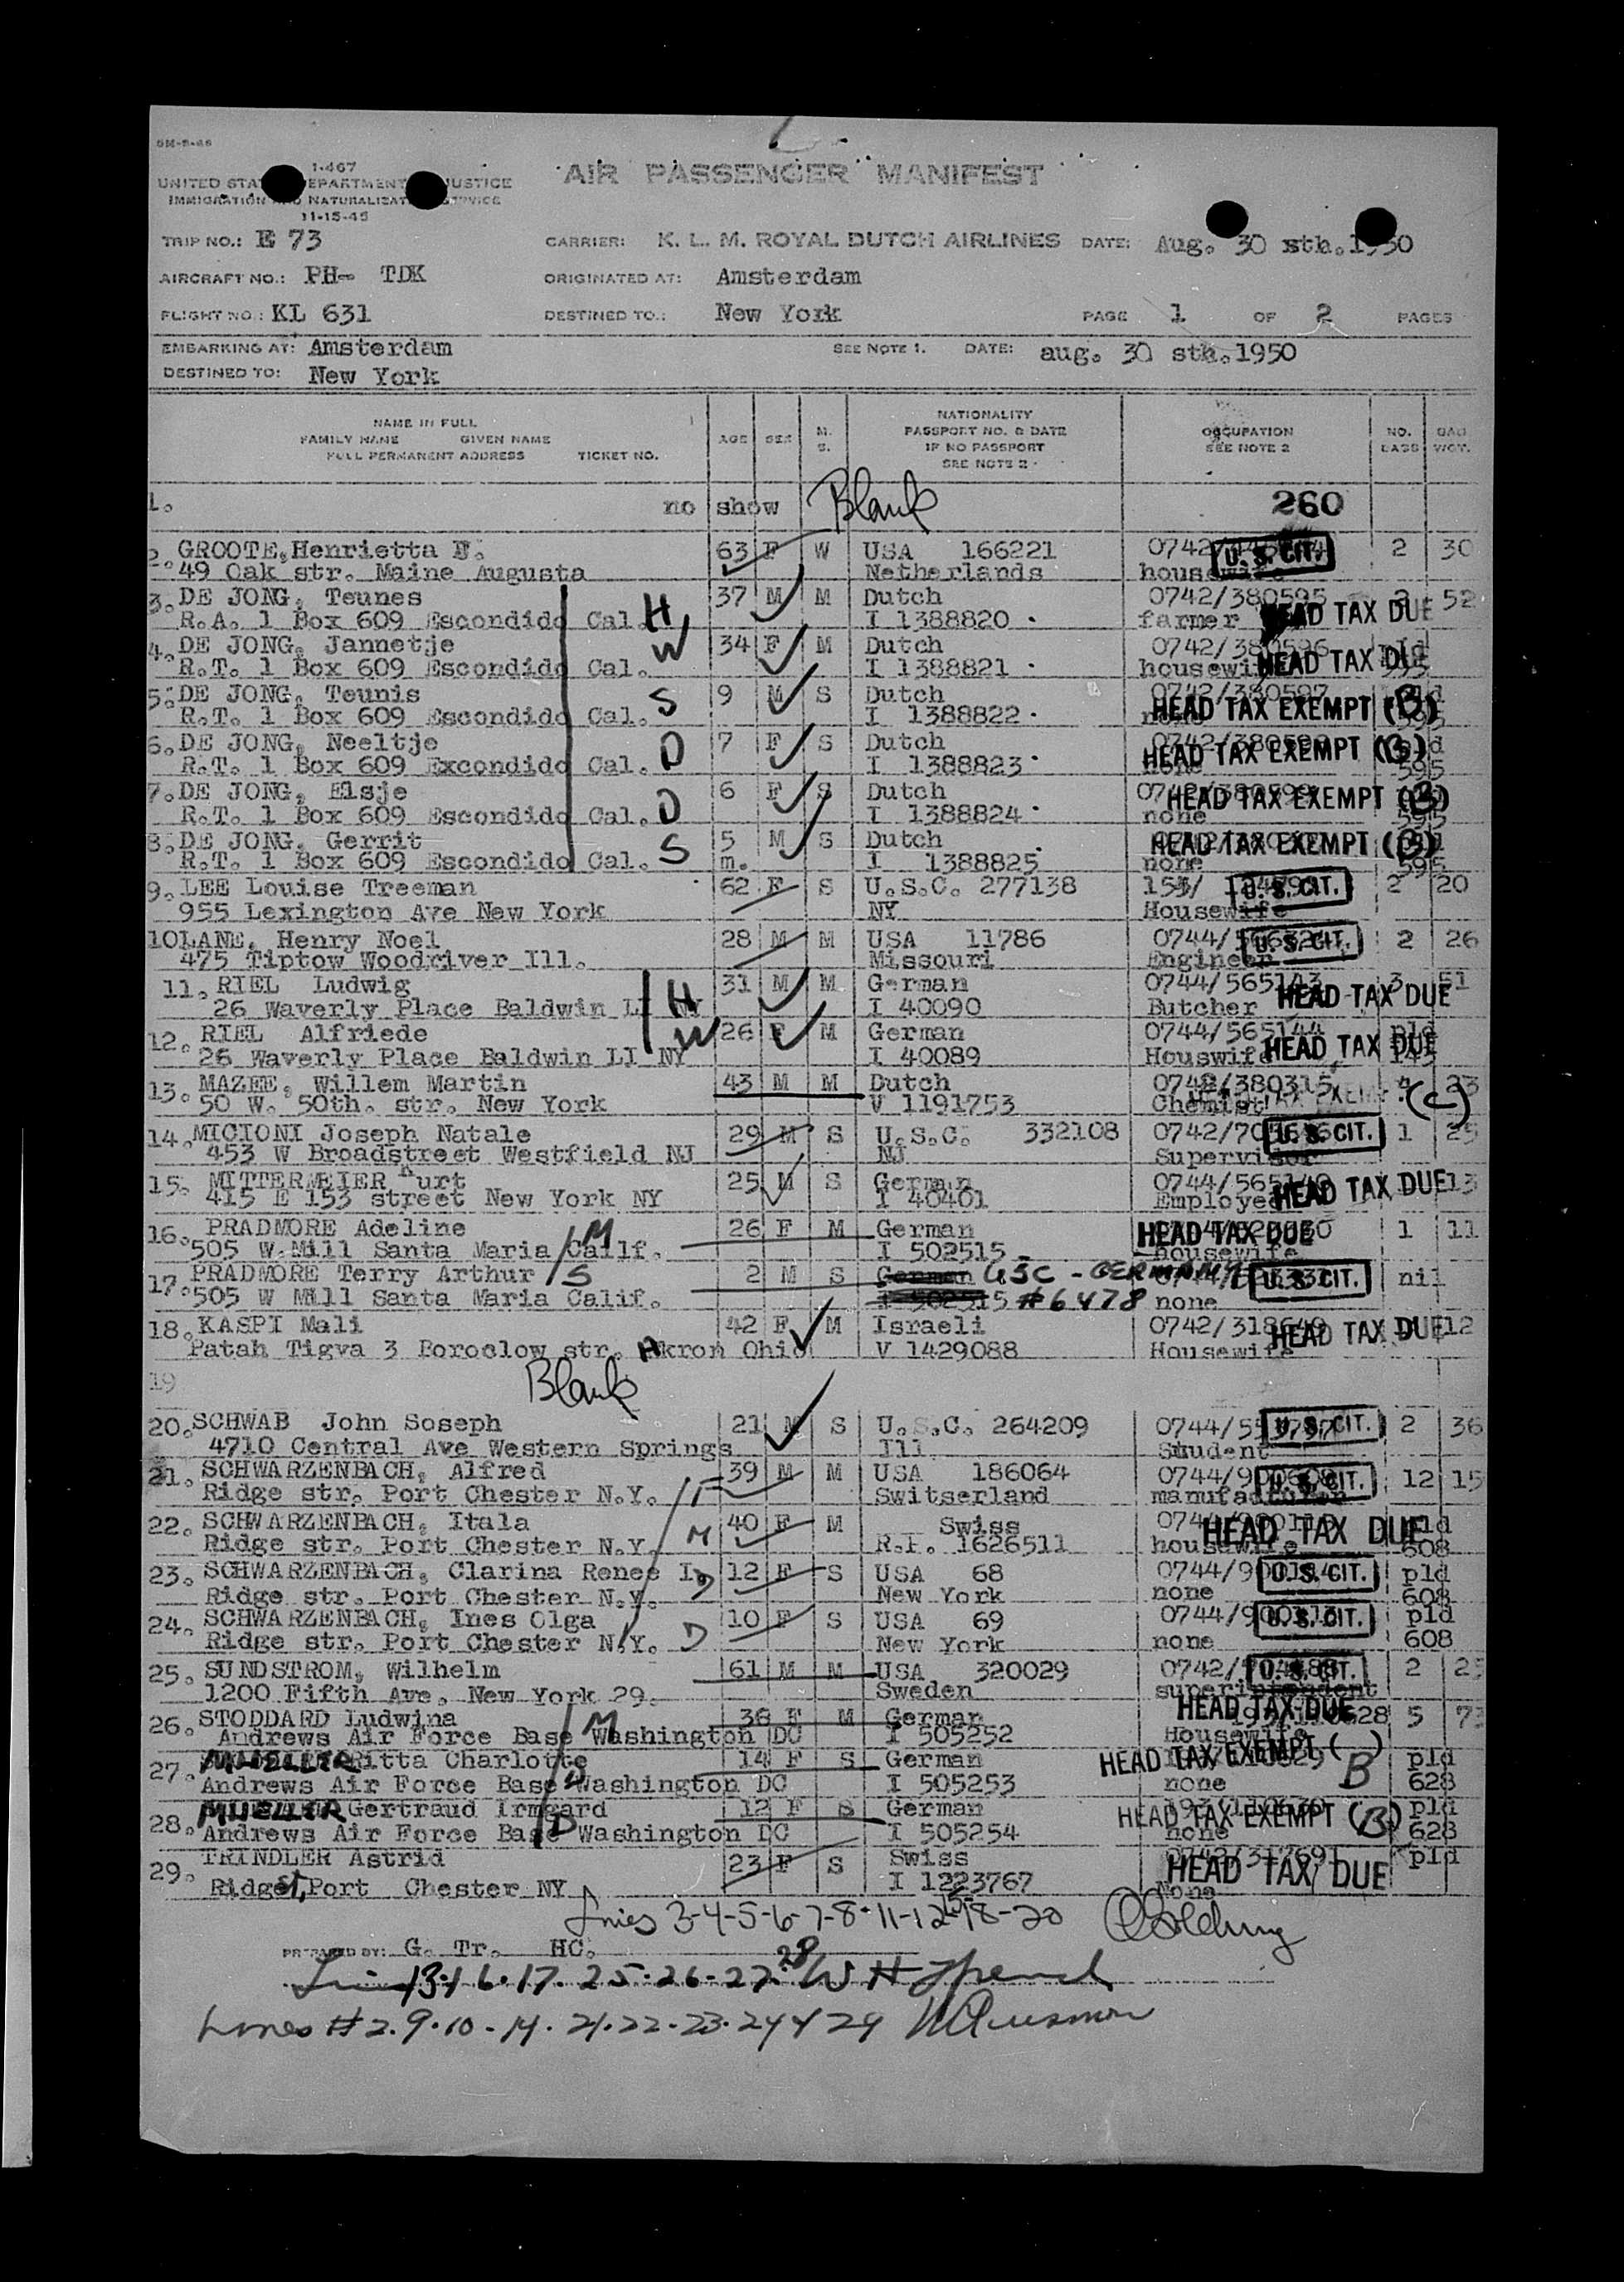 1-467
AIR PASSENGER MANIFEST
11-15-45
TRIP NO.: E 73 CARRIER: K. L. M. ROYAL DUTCH AIRLINES DATE: Aug. 30 sth. 1950
AIRCRAFT NO.: PH- TDK ORIGINATED AT: Amsterdam
FLIGHT NO.: KL 631 DESTINED TO.: New York PAGE 1 OF 2 PAGES
EMBARKING AT: Amsterdam SEE NOTE 1. DATE: aug. 30 sth. 1950
DESTINED TO: New York
NAME IN FULL NATIONALITY
FAMILY NAME GIVEN NAME AGE SEX M. PASSPORT NO. & DATE OCCUPATION NO.
FULL PERMANENT ADDRESS TICKET NO. S. IF NO PASSPORT SEE NOTE 2
SEE NOTE 2
1. no show Blank 260
2. GROOTE, Henrietta 63 F W USA 166221 U. S. CIT. 2 30
49 Oak str. Maine Augusta Netherlands housewife
3. DE JONG, Teunes 37 M M Dutch 0742/380595 52
R.A. 1 Box 609 Escondido Cal. H I 1388820 farmer HEAD TAX DUE
4. DE JONG, Jannetje 34 F M Dutch 0742/380596
R.T. 1 Box 609 Escondido Cal. W I 1388821 housewife HEAD TAX DUE
5. DE JONG, Teunis 9 M S Dutch 0742/380597
R.T. 1 Box 609 Escondido Cal. S I 1388822 none HEAD TAX EXEMPT (B) 595
6. DE JONG, Neeltje 7 F S Dutch
R.T. 1 Box 609 Excondido Cal. D I 1388823 none HEAD TAX EXEMPT (B) 595
7. DE JONG, Elsje 6 F S Dutch
R.T. 1 Box 609 Escondido Cal. D I 1388824 none HEAD TAX EXEMPT (B) 595
8. DE JONG, Gerrit 5 M S Dutch HEAD TAX EXEMPT (B)
R.T. 1 Box 609 Escondido Cal. S m. I 1388825 none 595
9. LEE Louise Treeman 62 F S U.S.C. 277138 U. S. CIT. 2 20
955 Lexington Ave New York NY Housewife
10 LANE, Henry Noel 28 M M USA 11786 U. S. CIT. 2 26
475 Tiptow Woodriver Ill. Missouri Engineer
11. RIEL Ludwig 31 M M German 0744/565143 3 51
26 Waverly Place Baldwin LI NY H I 40090 Butcher HEAD TAX DUE
12. RIEL Alfriede 26 F M German 0744/565144 pld
26 Waverly Place Baldwin LI NY W I 40089 Houswife HEAD TAX DUE
13. MAZEE, Willem Martin 43 M M Dutch 0742/380315 4 23
50 W. 50th. str. New York V 1191753 Chemist (C)
14. MICIONI Joseph Natale 29 M S U.S.C. 332108 U. S. CIT. 1 25
453 W Broadstreet Westfield NJ NJ Supervisor
15. MITTERMEIER Kurt 25 M S German
415 E 153 street New York NY I 40401 Employee HEAD TAX DUE 13
16. PRADMORE Adeline M 26 F M German HEAD TAX DUE 1 11
505 W.Mill Santa Maria Calif. I 502515 housewife
17. PRADMORE Terry Arthur S 2 M S German USC - GERMANY U. S. CIT. nil
505 W Mill Santa Maria Calif. I 502515 #6478 none
18. KASPI Mali 42 F M Israeli HEAD TAX DUE 12
Patah Tigva 3 Boroclow str. Akron Ohio V 1429088 Housewife
19 Blank
20. SCHWAB John Soseph 21 M S U.S.C. 264209 U. S. CIT. 2 36
4710 Central Ave Western Springs Ill Student
21. SCHWARZENBACH, Alfred 39 M M USA 186064 U. S. CIT. 12 15
Ridge str. Port Chester N.Y. F Switserland
22. SCHWARZENBACH, Itala 40 F M Swiss HEAD TAX DUE pld
Ridge str. Port Chester N.Y. M R.F. 1626511 housewife 608
23. SCHWARZENBACH, Clarina Renee I. 12 F S USA 68 U. S. CIT. pld
Ridge str. Port Chester N.Y. D New York none 608
24. SCHWARZENBACH, Ines Olga 10 F S USA 69 U. S. CIT. pld
Ridge str. Port Chester N.Y. D New York none 608
25. SUNDSTROM, Wilhelm 61 M M USA 320029 U. S. CIT. 2
1200 Fifth Ave. New York 29. Sweden superintendent
26. STODDARD Ludwina M 36 F M German HEAD TAX DUE 5
Andrews Air Force Base Washington DC I 505252 Housewife
27. MUELLER Ritta Charlotte 14 F S German HEAD TAX EXEMPT ( ) B pld
Andrews Air Force Base Washington DC D I 505253 none 628
28. MUELLER Gertraud Irmgard 12 F S German HEAD TAX EXEMPT (B) pld
Andrews Air Force Base Washington DC D I 505254 none 628
29. TRINDLER Astrid 23 F S Swiss HEAD TAX DUE pld
Ridge St, Port Chester NY I 1223767 None
Lines 3-4-5-6-7-8-11-12-15-18-20
PREPARED BY: G. Tr. HC.
Lines 13-16-17-25-26-27-28
Lines # 2.9.10-14-21-22-23-24 & 29